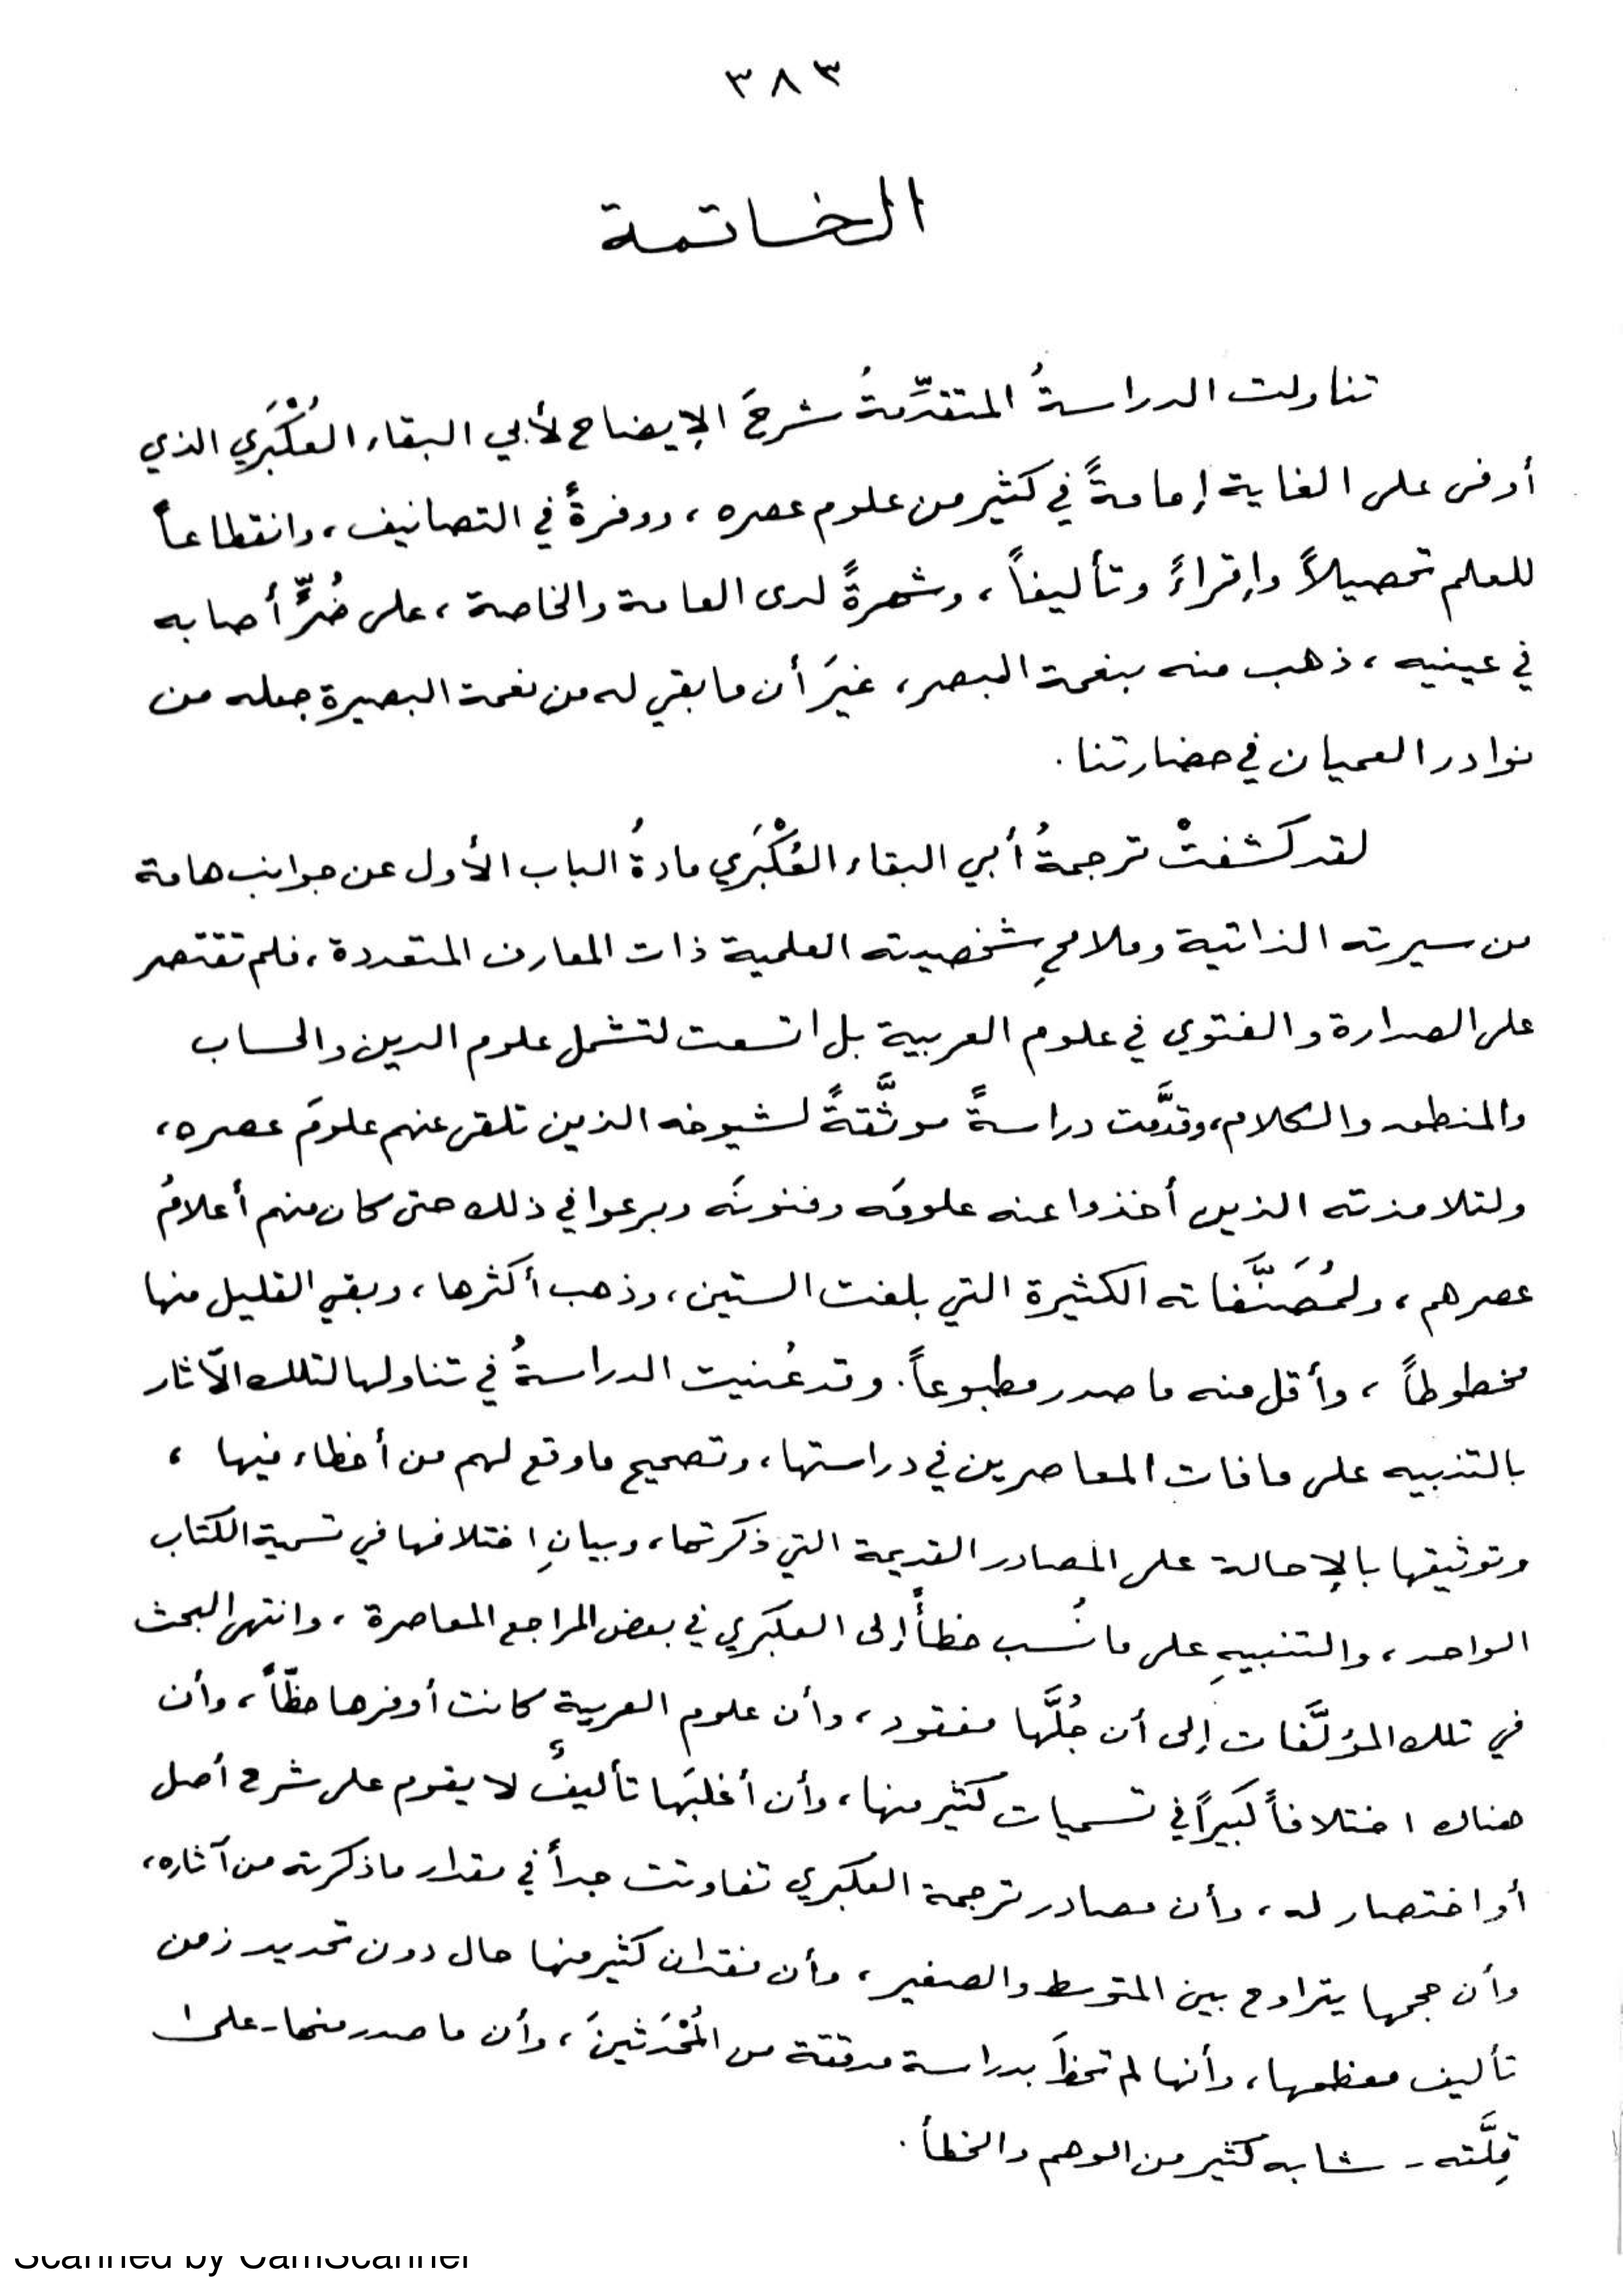 ٣٨٣
الخاتمة
تناولت الدراسةُ المتقدِّمةُ شرحَ الإيضاح لأبي البقاء العُكْبَري الذي
أوفى على الغاية إمامةً في كثير من علوم عصره ، ووفرةً في التصانيف ، وانقطاعاً
للعلم تحصيلاً وإقراءً وتأليفاً ، وشهرةً لدى العامة والخاصة ، على ضُرٍّ أصابه
في عينيه ، ذهب منه بنعمة البصر ، غيرَ أن ما بقي له من نعمة البصيرة جعله من
نوادر العميان في حضارتنا .
لقد كشفتْ ترجمةُ أبي البقاء العُكْبَري مادةُ الباب الأول عن جوانب هامة
من سيرته الذاتية وملامحِ شخصيته العلمية ذات المعارف المتعددة ، فلم تقتصر
على الصدارة و الفتوي في علوم العربية بل اتسعت لتشمل علوم الدين والحساب
والمنطق والكلام ، وقدَّمت دراسةً موثَّقةً لشيوخه الذين تلقى عنهم علومَ عصره ،
ولتلامذته الذين أخذوا عنه علومَه وفنونَه وبرعوا في ذلك حتى كان منهم أعلامُ
عصرهم ، ولمُصَنَّفاته الكثيرة التي بلغت الستين ، وذهب أكثرها ، وبقي القليل منها
مخطوطاً ، وأقل منه ما صدر مطبوعاً . وقد عُنيت الدراسةُ في تناولها لتلك الآثار
بالتنبيه على ما فات المعاصرين في دراستها ، وتصحيح ما وقع لهم من أخطاء فيها ،
وتوثيقها بالإحالة على المصادر القديمة التي ذكرتها ، وبيانِ اختلافها في تسمية الكتاب
الواحد ، والتنبيهِ على ما نُسب خطأً إلى العكبري في بعض المراجع المعاصرة ، وانتهى البحث
في تلك المؤلَّفات إلى أن جُلَّها مفقود ، وأن علوم العربية كانت أوفرها حظّاً ، وأن
هناك اختلافاً كبيراً في تسميات كثير منها ، وأن أغلبَها تأليفٌ لا يقوم على شرح أصل
أو اختصار له ، وأن مصادر ترجمة العكبري تفاوتت جداً في مقدار ما ذكرته من آثاره ،
وأن حجمها يتراوح بين المتوسط والصغير ، وأن فقدان كثير منها حال دون تحديد زمن
تأليف معظمها ، وأنها لم تحظَ بدراسة مدققة من المُحْدَثينَ ، وأن ما صدر منها - على
قِلَّته - شابه كثير من الوهم والخطأ .
Scanned by CamScanner